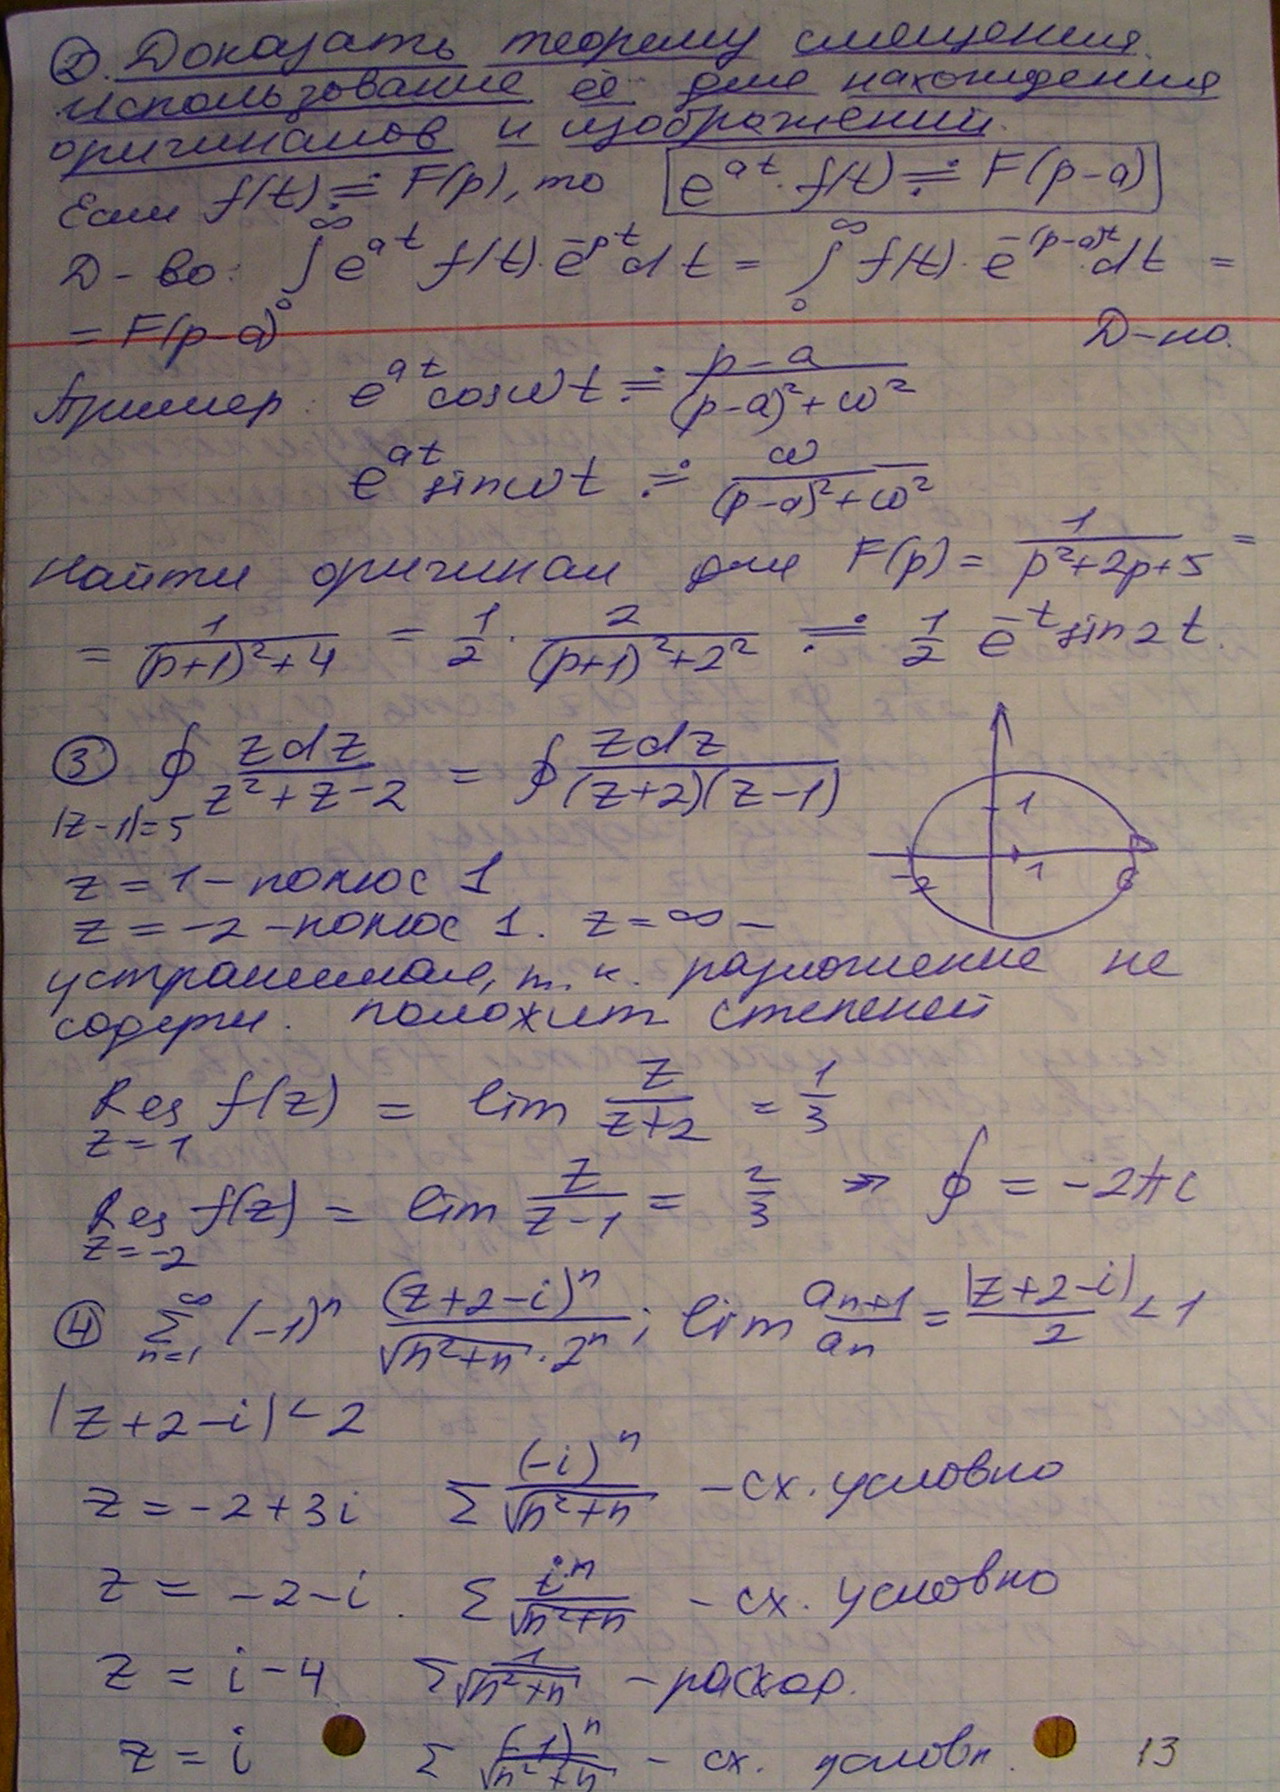 ② Доказать теорему смещения.
Использование её для нахождения
оригиналов и изображений.
Если f(t) ≓ F(p), то e^{at}·f(t) ≓ F(p-a)
Д-во: ∫₀^∞ e^{at} f(t)·e^{-pt} dt = ∫₀^∞ f(t)·e^{-(p-a)t} dt =
= F(p-a) Д-но.
Пример: e^{at} cosωt ≓ (p-a)/((p-a)²+ω²)
e^{at} sinωt ≓ ω/((p-a)²+ω²)
Найти оригинал для F(p) = 1/(p²+2p+5) =
= 1/((p+1)²+4) = 1/2 · 2/((p+1)²+2²) ≓ 1/2 e^{-t} sin2t.
③ ∮_{|z-1|=5} zdz/(z²+z-2) = ∮ zdz/((z+2)(z-1))
1
-2 1 6
z = 1 - полюс 1
z = -2 - полюс 1. z = ∞ -
устранимая, т.к. разложение не
содерж. положит степеней
Res_{z=1} f(z) = lim z/(z+2) = 1/3
Res_{z=-2} f(z) = lim z/(z-1) = 2/3 => ∮ = -2πi
④ ∑_{n=1}^∞ (-1)^n (z+2-i)^n/(√(n²+n)·2^n); lim a_{n+1}/a_n = |z+2-i|/2 < 1
|z+2-i| < 2
z = -2+3i ∑ (-i)^n/√(n²+n) - сх. условно
z = -2-i. ∑ i^n/√(n²+n) - сх. условно
z = i-4 ∑ 1/√(n²+n) - расход.
z = i ∑ (-1)^n/√(n²+n) - сх. условн.
13